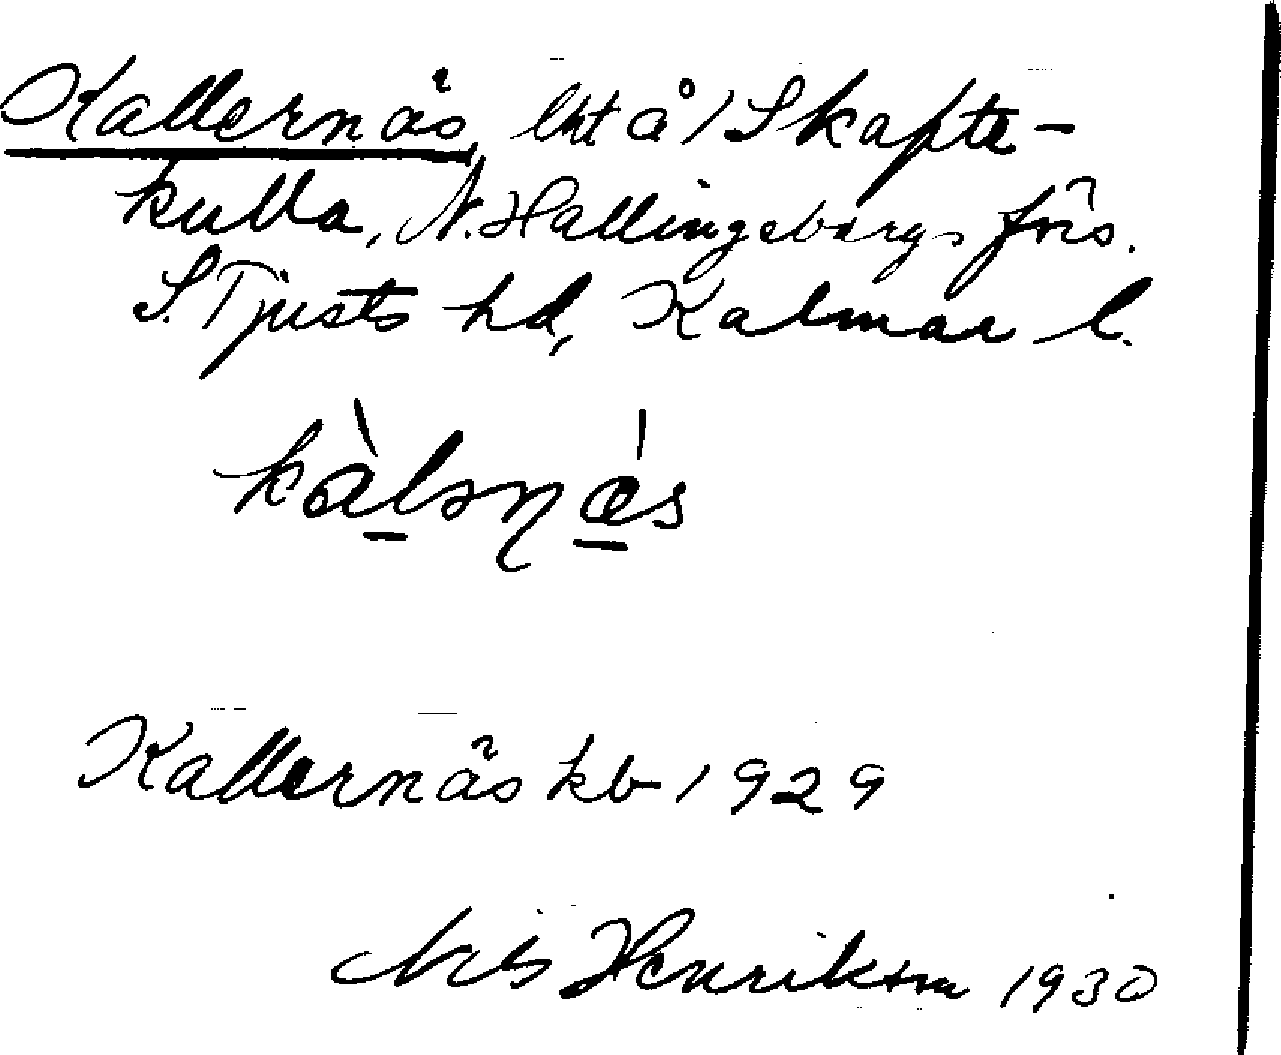 Kallernäs, lht å 1 Skapte-
kulla, N. Hallingebergs förs.
S. Tjusts hd, Kalmar l.
kàlənǽs
Kallernäs kb 1929
Nils Henrikson 1930